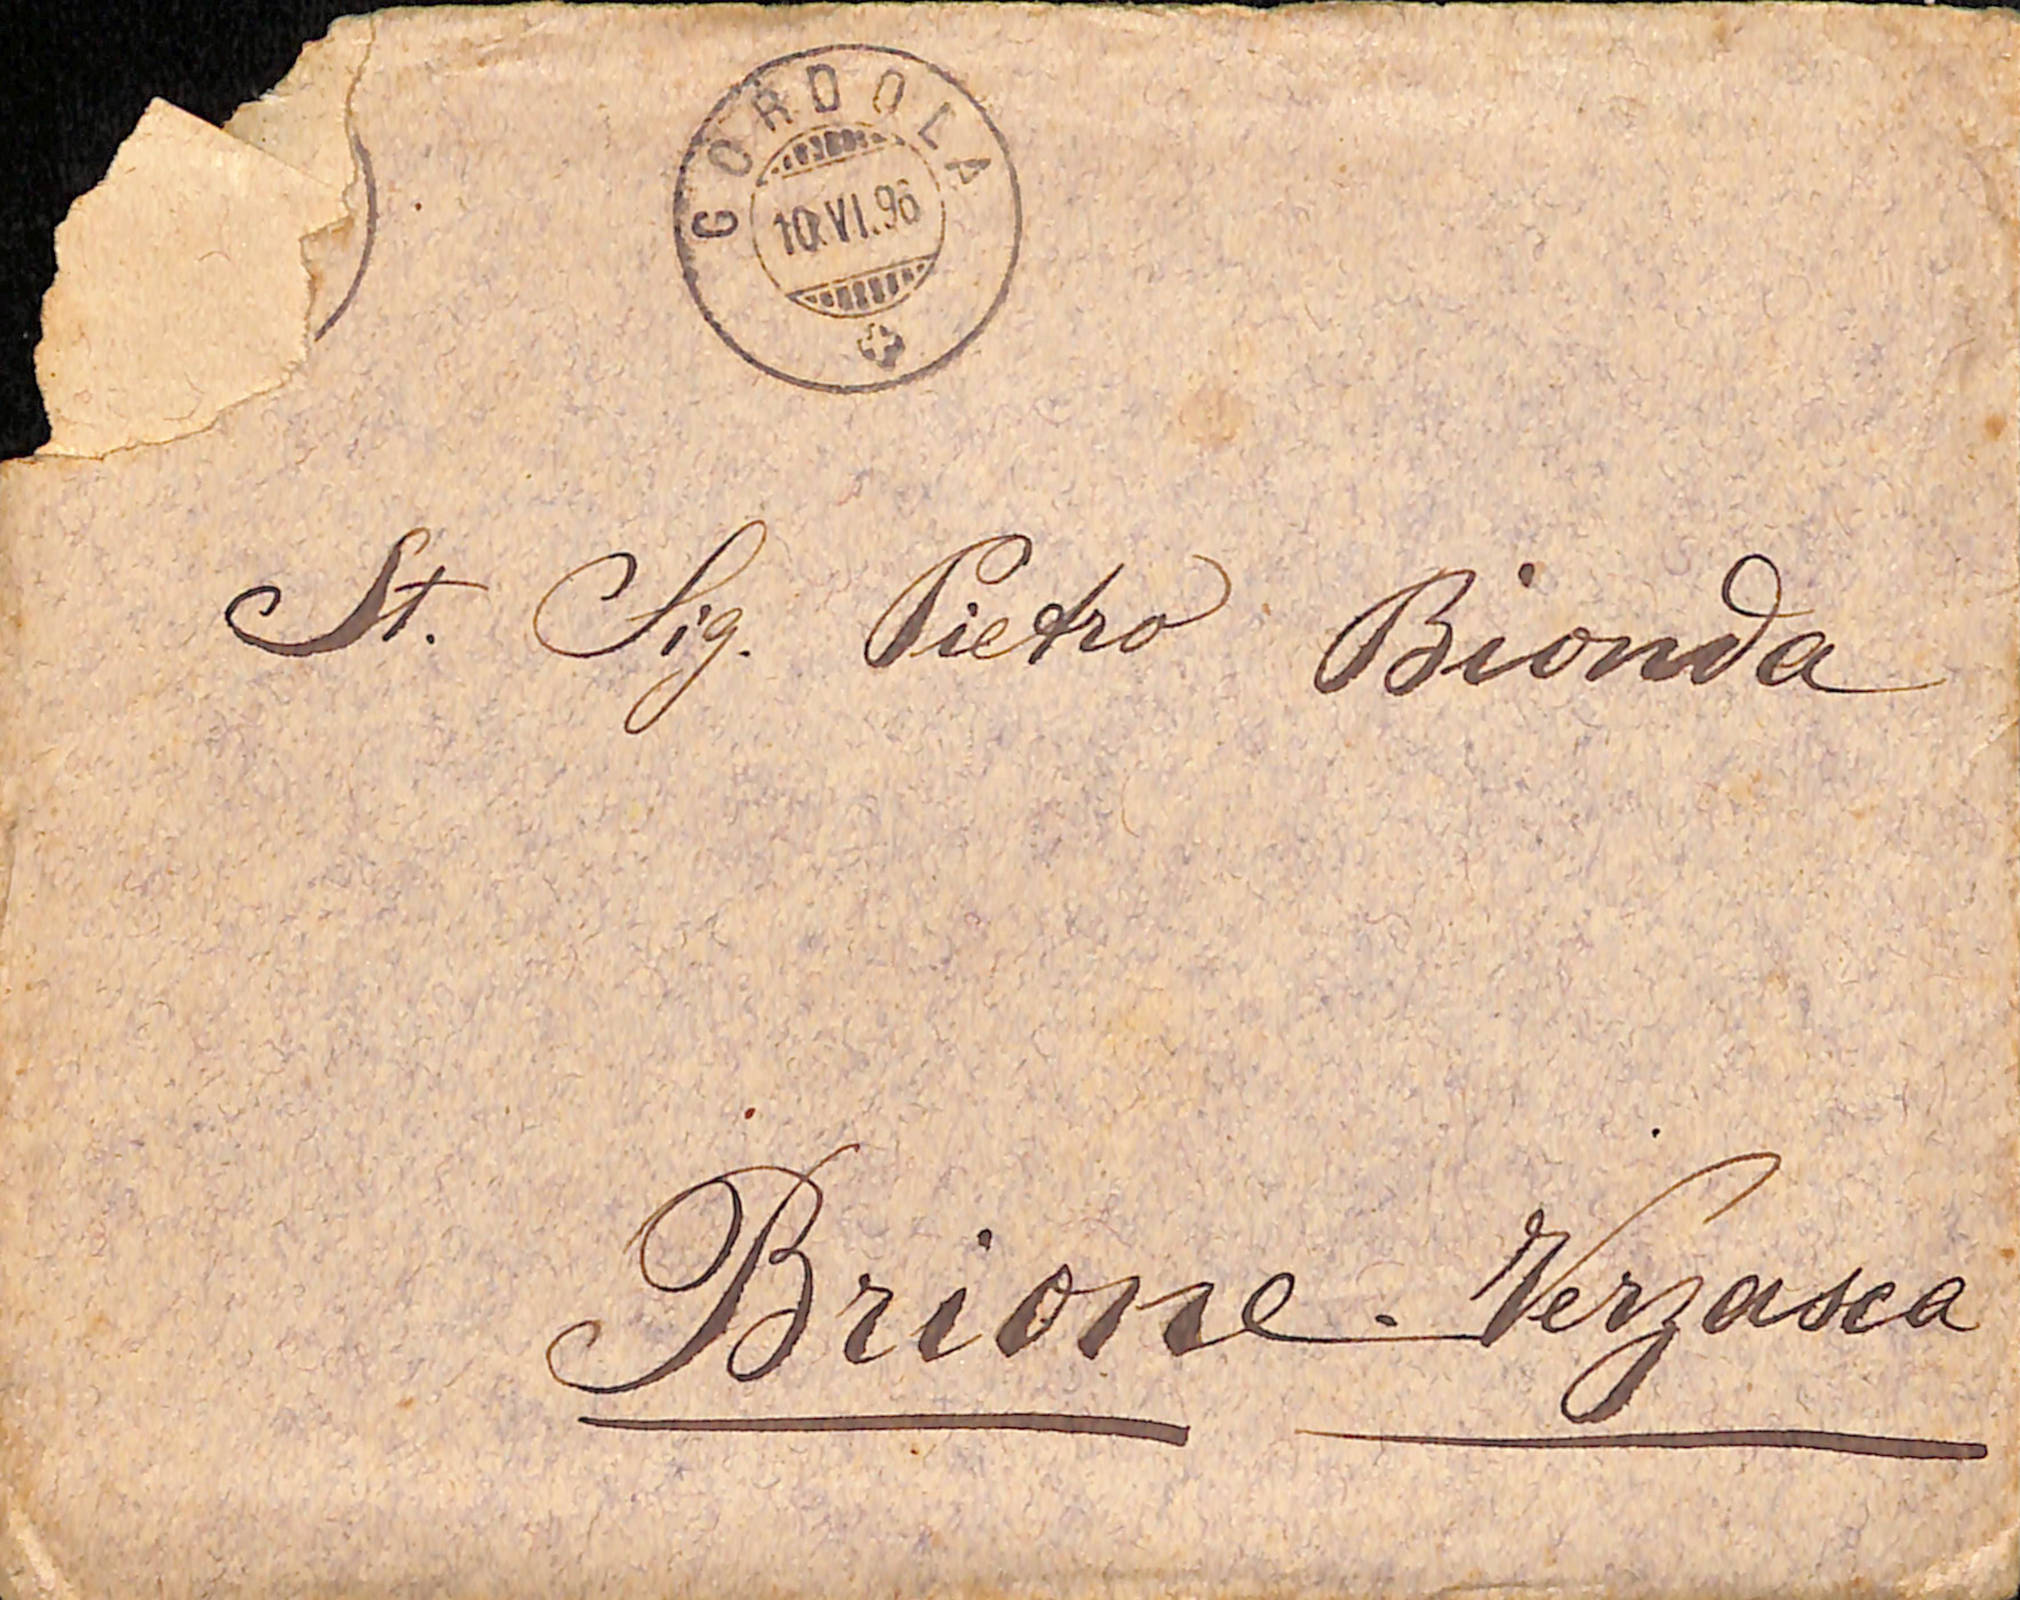 GORDOLA
10.VI.96
St. Sig. Pietro Bionda
Brione. Verzasca